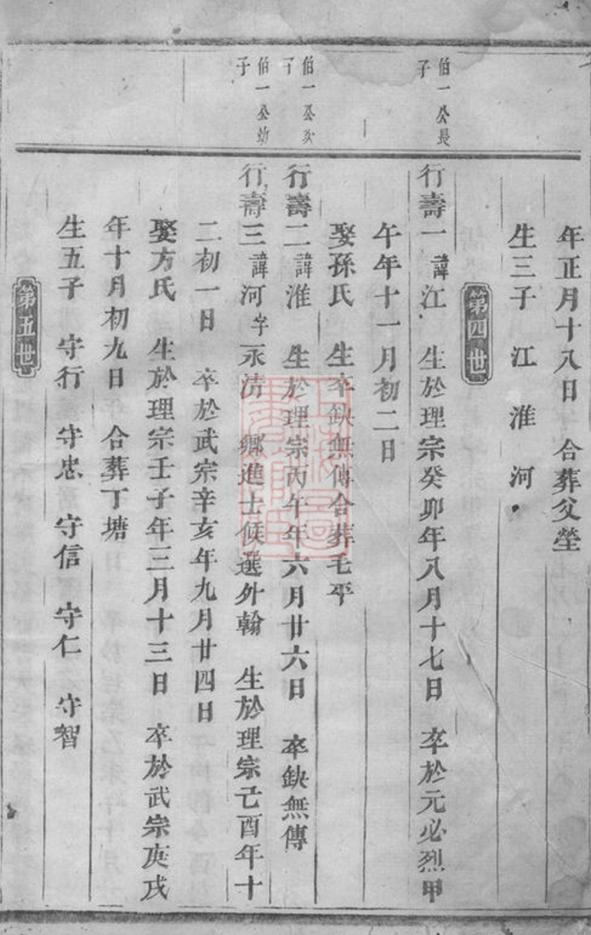 年正月十八日 合葬父塋
生三子 江 淮 河
第四世
伯一公長子
行壽一諱江 生於理宗癸卯年八月十七日 卒於元必烈甲
午年十一月初二日
娶孫氏 生卒缺無傳合葬七平
伯一公次子
行壽二諱淮 生於理宗丙午年六月廿六日 卒缺無傳
伯一公幼子
行壽三諱河字永清 鄉進士候選外翰 生於理宗己酉年十
二初一日 卒於武宗辛亥年九月廿四日
娶方氏 生於理宗壬子年三月十三日 卒於武宗庚戌
年十月初九日 合葬丁塘
生五子 守行 守忠 守信 守仁 守智
第五世